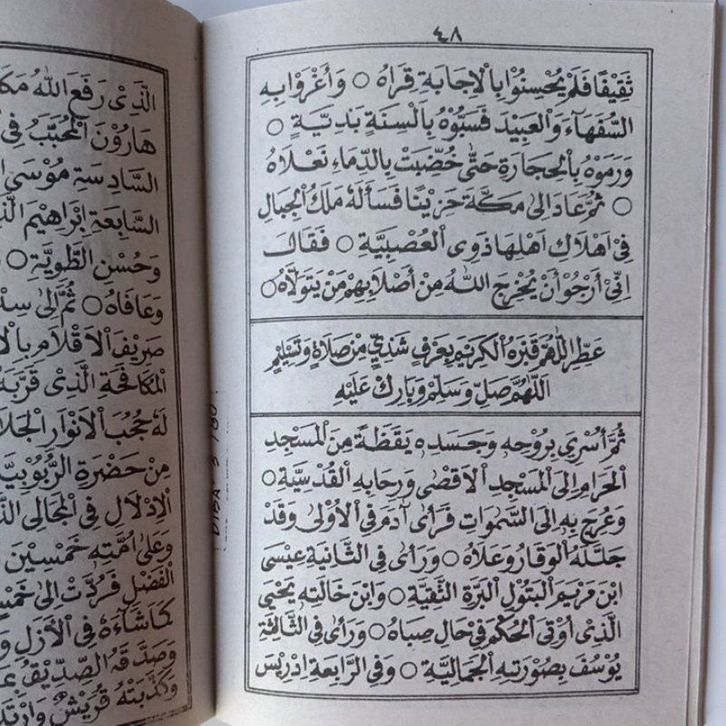 ٤٨
ثَقِيْفًا فَلَمْ يُحْسِنُوْا بِالْاِجَابَةِ قِرَاهُ ○ وَأَغْرَوْا بِهِ
السُّفَهَآءَ وَالْعَبِيْدَ فَسَبُّوْهُ بِأَلْسِنَةٍ بَذِيَّةٍ ○
وَرَمَوْهُ بِالْحِجَارَةِ حَتّٰى خُضِّبَتْ بِالدِّمَاءِ نَعْلَاهُ
○ ثُمَّ عَادَ اِلٰى مَكَّةَ حَزِيْنًا فَسَأَلَهُ مَلَكُ الْجِبَالِ
فِى اِهْلَاكِ اَهْلِهَا ذَوِى الْعَصَبِيَّةِ ○ فَقَالَ
اِنِّىْ أَرْجُوْ أَنْ يُخْرِجَ اللّٰهُ مِنْ أَصْلَابِهِمْ مَنْ يَتَوَلَّاهُ ○
عَطِّرِ اللّٰهُمَّ قَبْرَهُ الْكَرِيْمَ بِعَرْفٍ شَذِيٍّ مِنْ صَلَاةٍ وَتَسْلِيْمٍ
اَللّٰهُمَّ صَلِّ وَسَلِّمْ وَبَارِكْ عَلَيْهِ
ثُمَّ أُسْرِيَ بِرُوْحِهِ وَجَسَدِهِ يَقَظَةً مِنَ الْمَسْجِدِ
الْحَرَامِ اِلَى الْمَسْجِدِ الْاَقْصٰى وَرِحَابِهِ الْقُدْسِيَّةِ ○
وَعُرِجَ بِهِ اِلَى السَّمٰوَاتِ فَرَأَى آدَمَ فِى الْأُوْلٰى وَقَدْ
جَلَّلَهُ الْوَقَارُ وَعَلَاهُ ○ وَرَأٰى فِى الثَّانِيَةِ عِيْسَى
ابْنَ مَرْيَمَ الْبَتُوْلِ الْبَرَّةِ النَّقِيَّةِ ○ وَابْنَ خَالَتِهِ يَحْيَى
الَّذِى أُوْتِىَ الْحُكْمَ فِيْ حَالِ صِبَاهُ ○ وَرَأٰى فِى الثَّالِثَةِ
يُوْسُفَ بِصُوْرَتِهِ الْجَمَالِيَّةِ ○ وَفِى الرَّابِعَةِ اِدْرِيْسَ
الَّذِىْ رَفَعَ اللّٰهُ
هَارُوْنَ الْمُحَبَّبَ فِى
السَّادِسَةِ مُوْسَى
السَّابِعَةِ اِبْرَاهِيْمَ
وَحُسْنِ الطَّوِيَّةِ ○
وَعَافَاهُ ○ ثُمَّ اِلٰى
صَرِيْفَ الْاَقْلَامِ
الْمُكَافَحَةِ الَّذِى قَرَّبَهُ
لَهُ حُجُبَ الْاَنْوَارِ
مِنْ حَضْرَةِ الرُّبُوْبِيَّةِ
الْاِدْلَالِ فِى الْمَجَالِى
وَعَلٰى اُمَّتِهِ خَمْسِيْنَ
الْفَضْلِ فَرُدَّتْ اِلٰى
كَمَا شَآءَهُ فِى الْأَزَلِ
وَصَدَّقَهُ الصِّدِّيْقُ
وَكَذَّبَتْهُ قُرَيْشٌ